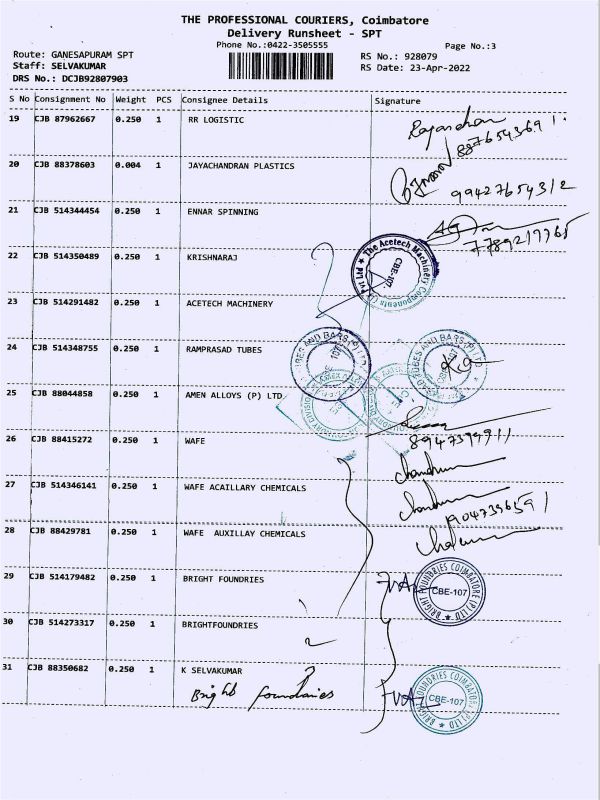 THE PROFESSIONAL COURIERS, Coimbatore
Delivery Runsheet - SPT
Phone No.:0422-3505555
Page No.:3
Route: GANESAPURAM SPT
RS No.: 928079
Staff: SELVAKUMAR
RS Date: 23-Apr-2022
DRS No.: DCJB92807903
S No Consignment No Weight PCS Consignee Details Signature
19 CJB 87962667 0.250 1 RR LOGISTIC
20 CJB 88378603 0.004 1 JAYACHANDRAN PLASTICS
9942765431 2
21 CJB 514344454 0.250 1 ENNAR SPINNING
22 CJB 514350489 0.250 1 KRISHNARAJ
The Acetech Machinery Components
CBE-107
23 CJB 514291482 0.250 1 ACETECH MACHINERY
24 CJB 514348755 0.250 1 RAMPRASAD TUBES
25 CJB 88044858 0.250 1 AMEN ALLOYS (P) LTD
26 CJB 88415272 0.250 1 WAFE
27 CJB 514346141 0.250 1 WAFE ACAILLARY CHEMICALS
28 CJB 88429781 0.250 1 WAFE AUXILLAY CHEMICALS
29 CJB 514179482 0.250 1 BRIGHT FOUNDRIES
BRIGHT FOUNDRIES COIMBATORE (P) LTD
CBE-107
30 CJB 514273317 0.250 1 BRIGHTFOUNDRIES
31 CJB 88350682 0.250 1 K SELVAKUMAR
Bright foundaries
BRIGHT FOUNDRIES COIMBATORE (P) LTD
CBE-107